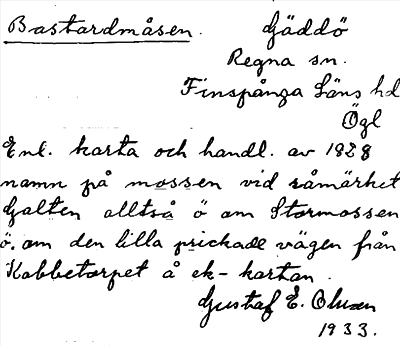 Bastardmåsen. Gäddö
Regna sn.
Finspånga Läns hd
Ögl
Enl. karta och handl. av 1828
namn på mossen vid råmärket
Galten alltså ö om Stormossen
ö. om den lilla prickade vägen från
Kabbetorpet å ek-kartan.
Gustaf E. Olsson
1933.